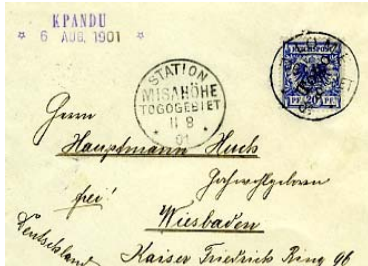 KPANDU
* 6 AUG. 1901 *
STATION
MISAHÖHE
TOGOGEBIET
11 8
01
REICHSPOST
20 PF
Herrn
Hauptmann Huck
Hochwohlgeboren
frei!
Wiesbaden
Deutschland
Kaiser Friedrich Ring 96